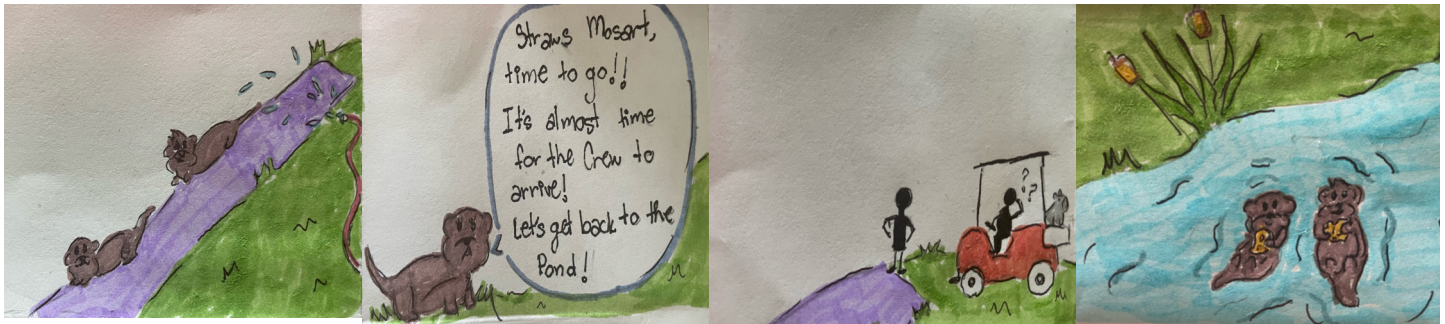 Straws Mosart,
time to go!!
It's almost time
for the Crew to
arrive!
Let's get back to the
Pond!
? ?
?